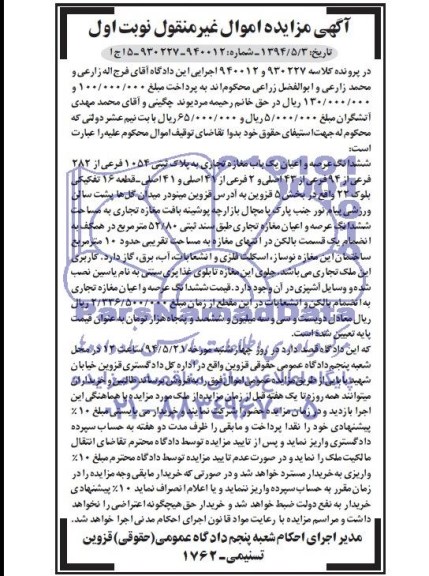 آگهی مزایده اموال غیرمنقول نوبت اول
تاریخ: ۱۳۹۴/۵/۳-شماره: ۹۴۰۰۱۲-۹۳۰۲۲۷-۵اج۱
در پرونده کلاسه ۹۳۰۲۲۷ و ۹۴۰۰۱۲ اجرایی این دادگاه آقای فرج اله زارعی و
محمد زارعی و ابوالفضل زراعی محکوم اند به پرداخت مبلغ ۱۰۰/۰۰۰/۰۰۰ و
۱۳۰/۰۰۰/۰۰۰ ریال در حق خانم رحیمه مردیوند چگینی و آقای محمد مهدی
آتشگران مبلغ ۵/۰۰۰/۰۰۰ ریال و ۶۵/۰۰۰/۰۰۰ ریال بابت نیم عشر دولتی که
محکوم له جهت استیفای حقوق خود بدوا تقاضای توقیف اموال محکوم علیه را عبارت
است:
ششدانگ عرصه و اعیان یک باب مغازه تجاری به پلاک ثبتی ۱۰۵۴ فرعی از ۲۸۲
فرعی از ۹۴ فرعی از ۴۳ اصلی و ۲ فرعی از ۴۱ اصلی و ۴۱ اصلی-قطعه ۱۶ تفکیکی
بلوک ۲۲ واقع در بخش ۵ قزوین به آدرس قزوین مینودر میدان گل ها پشت سالن
ورزشی پیام نور جنب پارک باملچال بازارچه پوشینه بافت مغازه تجاری به مساحت
ششدانگ عرصه و اعیان مغازه تجاری طبق سند ثبتی ۵۲/۸۰ مترمربع در همکف به
انضمام یک قسمت بالکن در انتهای مغازه به مساحت تقریبی حدود ۱۰ مترمربع
ساختمان این مغازه نوساز، اسکلت فلزی و انشعابات، آب، برق، گاز دارد. کاربری
این ملک تجاری می باشد. جلوی این مغازه تابلوی غذاپزی سنتی به نام یاسین نصب
شده و وسایل آشپزی در آن وجود دارد. قیمت ششدانگ عرصه و اعیان مغازه تجاری
به انضمام بالکن و انشعابات در این مقطع از زمان مبلغ ۲/۳۳۶/۵۰۰/۰۰۰
ریال معادل دویست و سی و سه میلیون و ششصد و پنجاه هزار تومان به عنوان قیمت
پایه تعیین شده است.
که این دادگاه قصد دارد در روز چهارشنبه مورخه ۹۴/۵/۲۷ ساعت ۱۲ در محل
شعبه پنجم دادگاه عمومی حقوقی قزوین واقع در اداره کل دادگستری قزوین خیابان
شهید بابایی از طریق مزایده عمومی اموال فوق را به فروش برساند طالبین و خریداران
میتوانند همه روز تا یک هفته قبل از زمان مزایده از ملک مورد مزایده با هماهنگی این
اجرا بازدید و در زمان مزایده حضور و شرکت نمایند و خریدار می بایستی مبلغ ۱۰٪
پیشنهادی خود را نقدا پرداخت و مابقی را ظرف مدت دو هفته به حساب سپرده
دادگستری واریز نماید و پس از تایید مزایده توسط دادگاه محترم تقاضای انتقال
مالکیت ملک را نماید و در صورت عدم تایید مزایده توسط دادگاه محترم مبلغ ۱۰٪
واریزی به خریدار مسترد خواهد شد و در صورتی که خریدار مابقی وجه مزایده را در
زمان مقرر به حساب سپرده واریز ننماید و یا اعلام انصراف نماید ۱۰٪ پیشنهادی
خریدار به نفع دولت ضبط خواهد شد و خریدار حق هیچگونه اعتراضی را نخواهد
داشت و مراسم مزایده با رعایت مواد قانون اجرای احکام مدنی اجرا خواهد شد.
مدیر اجرای احکام شعبه پنجم دادگاه عمومی(حقوقی) قزوین
تسنیمی-۱۷۶۲
ParsNamadData